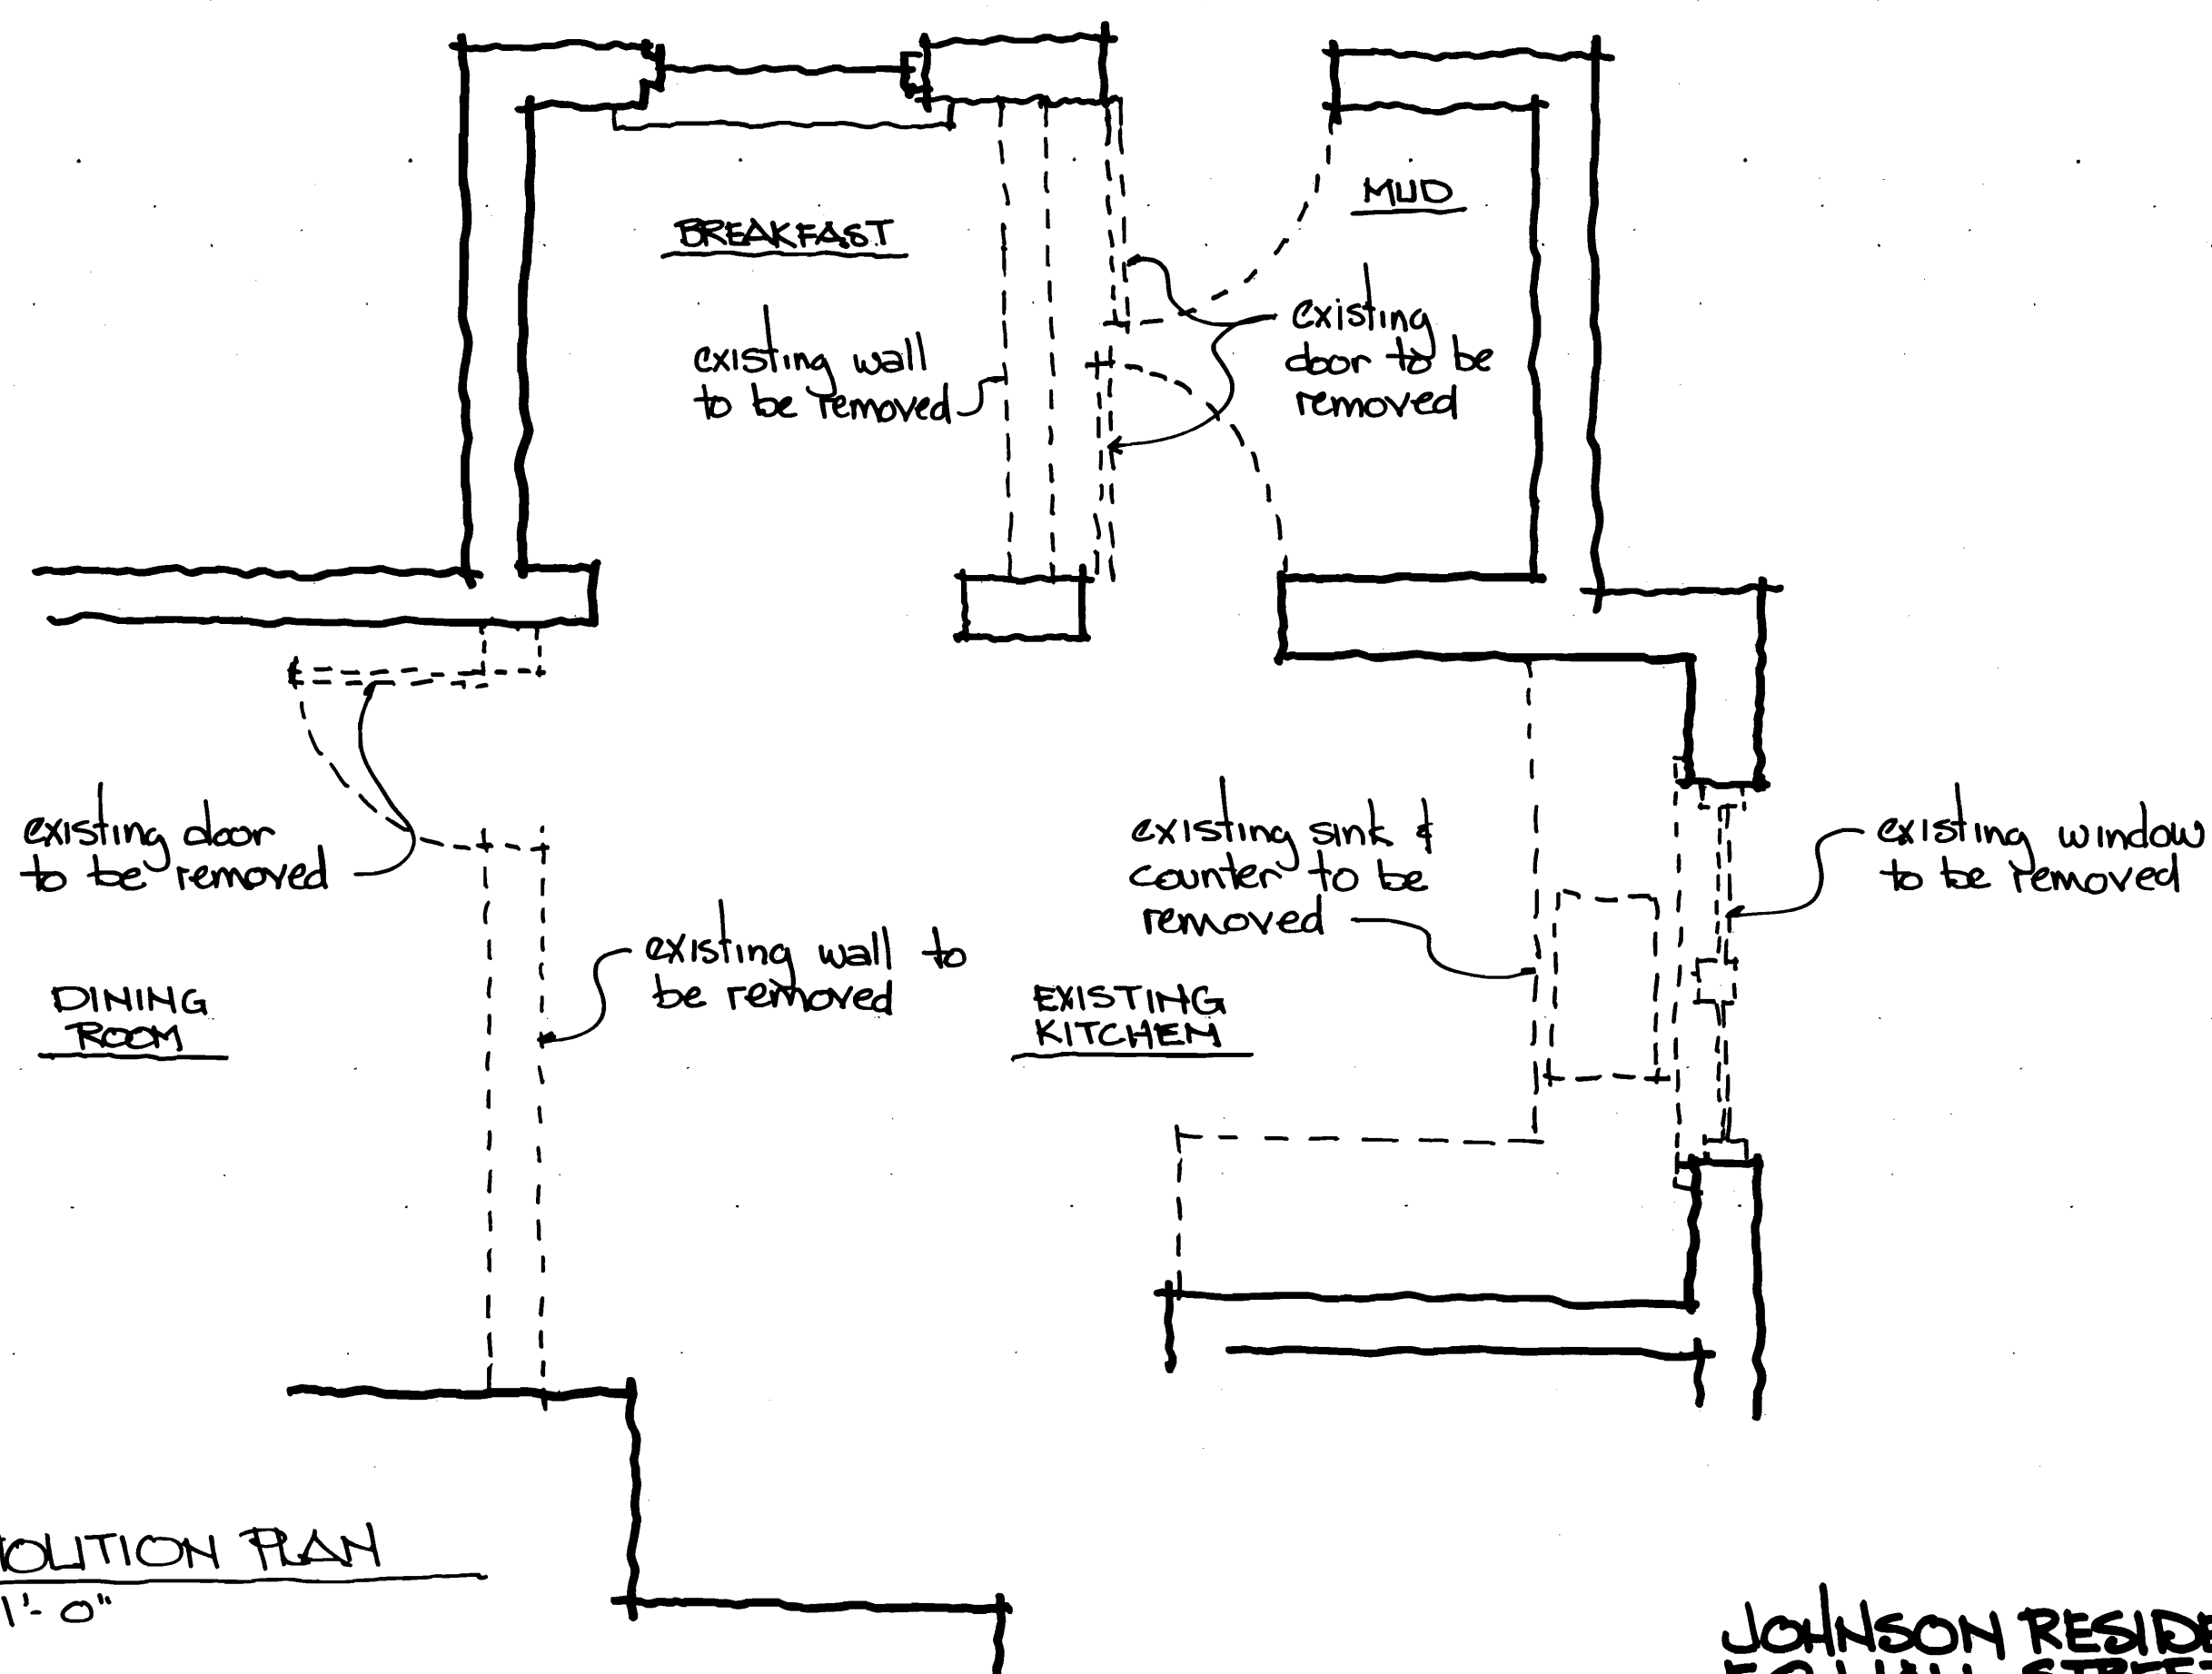 MUD
BREAKFAST
existing wall
to be removed
existing
door to be
removed
existing door
to be removed
existing sink &
counter to be
removed
existing window
to be removed
existing wall to
be removed
DINING
ROOM
EXISTING
KITCHEN
OLITION PLAN
1'-0"
JOHNSON RESIDE